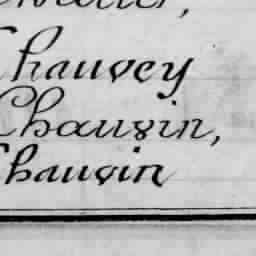 Chauvey
Chauvin,
Chauvin